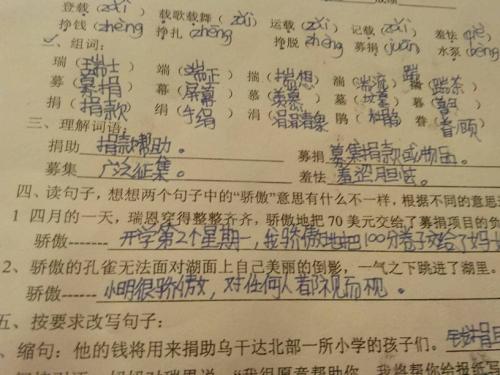 登载(zǎi) 载歌载舞(zài) 运载(zài) 记载(zǎi) 羞怯(qiè)
挣钱(zhèng) 挣扎(zhēng) 挣脱(zhèng) 募捐(juān) 水泵(bèng)
二、组词:
瑞(瑞士) 端(端正) 揣(揣想) 湍(湍流) 踹(踹)
募(募捐) 幕(屏幕) 慕(羡慕) 墓(坟墓) 暮(暮年)
捐(捐款) 绢(手绢) 涓(涓涓) 鹃(杜鹃) 眷(眷顾)
三、理解词语:
捐助 捐款帮助。 募捐 募集捐款或物品。
募集 广泛征集。 羞怯 羞涩胆怯。
四、读句子,想想两个句子中的“骄傲”意思有什么不一样,根据不同的意思
1 四月的一天,瑞恩穿得整整齐齐,骄傲地把70美元交给了募捐项目的负
骄傲------ 开学第2个星期一,我骄傲地把100分卷子交给了妈
2、骄傲的孔雀无法面对湖面上自己美丽的倒影,一气之下跳进了湖里。
骄傲------ 小明很骄傲,对任何人都视而不视。
五、按要求改写句子:
、缩句:他的钱将用来捐助乌干达北部一所小学的孩子们。 钱捐
“我很愿意帮助你,我将帮你给报纸写